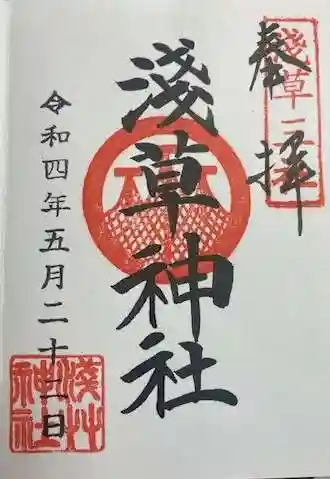 奉拝
淺草三社
淺草神社
令和四年五月二十二日
淺草神社